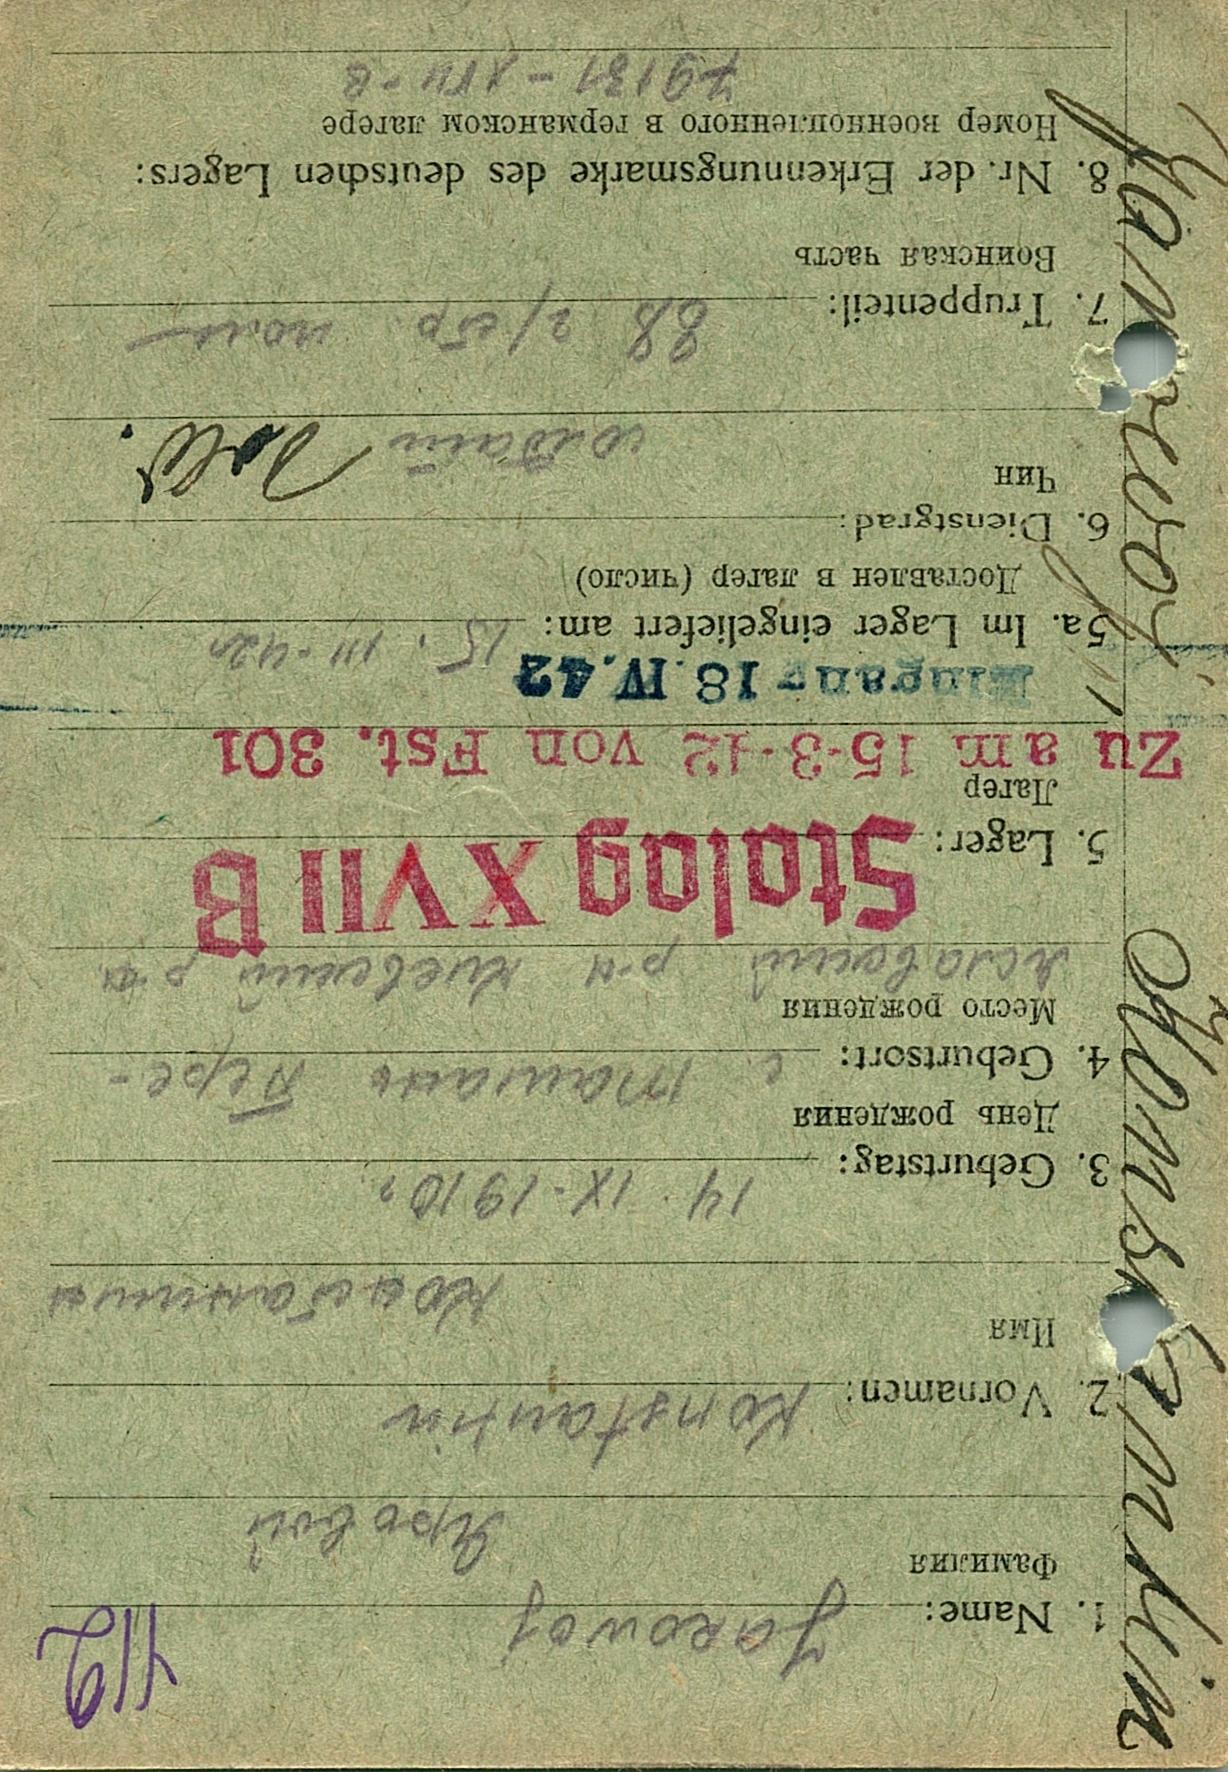 412
1. Name: Jarowoj
Фамилия
Яровой
2. Vornamen: Konstantin
Имя
Константин
3. Geburtstag:
14. IX - 1910 г
День рождения
4. Geburtsort: с. Ташань Пере-
Место рождения
яславский р-н Киевский р-н
Stalag XVII B
5. Lager:
Лагер
Zu am 15-3-42 von Fst. 301
Eingang 18. IV. 42
5a. Im Lager eingeliefert am: 15. III - 42 г
Доставлен в лагер (число)
6. Dienstgrad:
Чин
Sold.
7. Truppenteil: 88
Воинская часть
8. Nr. der Erkennungsmarke des deutschen Lagers:
Номер военнопленного в германском лагере
79131 - XVII - B
Konstantin